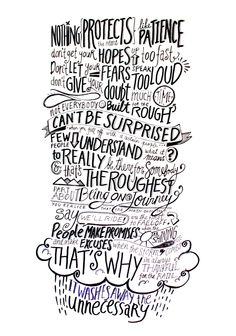 NOTHING PROTECTS like PATIENCE
don't get your HOPES up too fast
Don't LET your FEARS SPEAK TOO LOUD
don't GIVE your doubt much TIME
not EVERYBODY'S Built for the ROUGH
CAN'T BE SURPRISED
when they fall off with a
FEW PEOPLE UNDERSTAND what it means
to REALLY be there for Somebody
that's THE ROUGHEST
PART ABOUT Being on a Journey
SAY WE'LL RIDE!
People MAKE PROMISES
and later EXCUSES when
THAT'S WHY I'm always THANKFUL for the RAIN
IT WASHES AWAY the
unnecessary